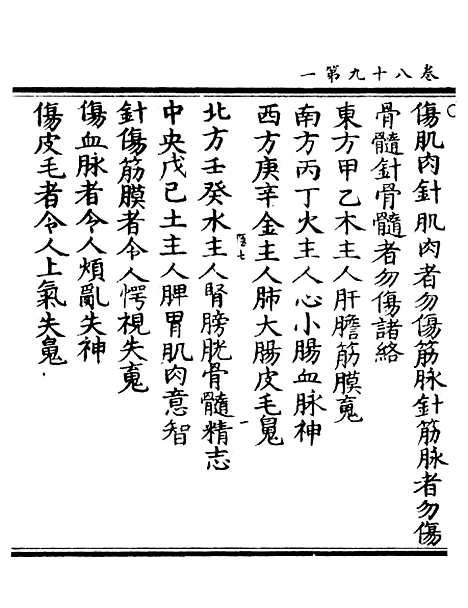 卷八十九第一
傷肌肉針肌肉者勿傷筋脉針筋脉者勿傷
骨髓針骨髓者勿傷諸絡
東方甲乙木主人肝膽筋膜䰟
南方丙丁火主人心小腸血脉神
西方庚辛金主人肺大腸皮毛䰟
北方壬癸水主人腎膀胱骨髓精志
中央戊己土主人脾胃肌肉意智
針傷筋膜者令人愕視失䰟
傷血脉者令人煩亂失神
傷皮毛者令人上氣失䰟